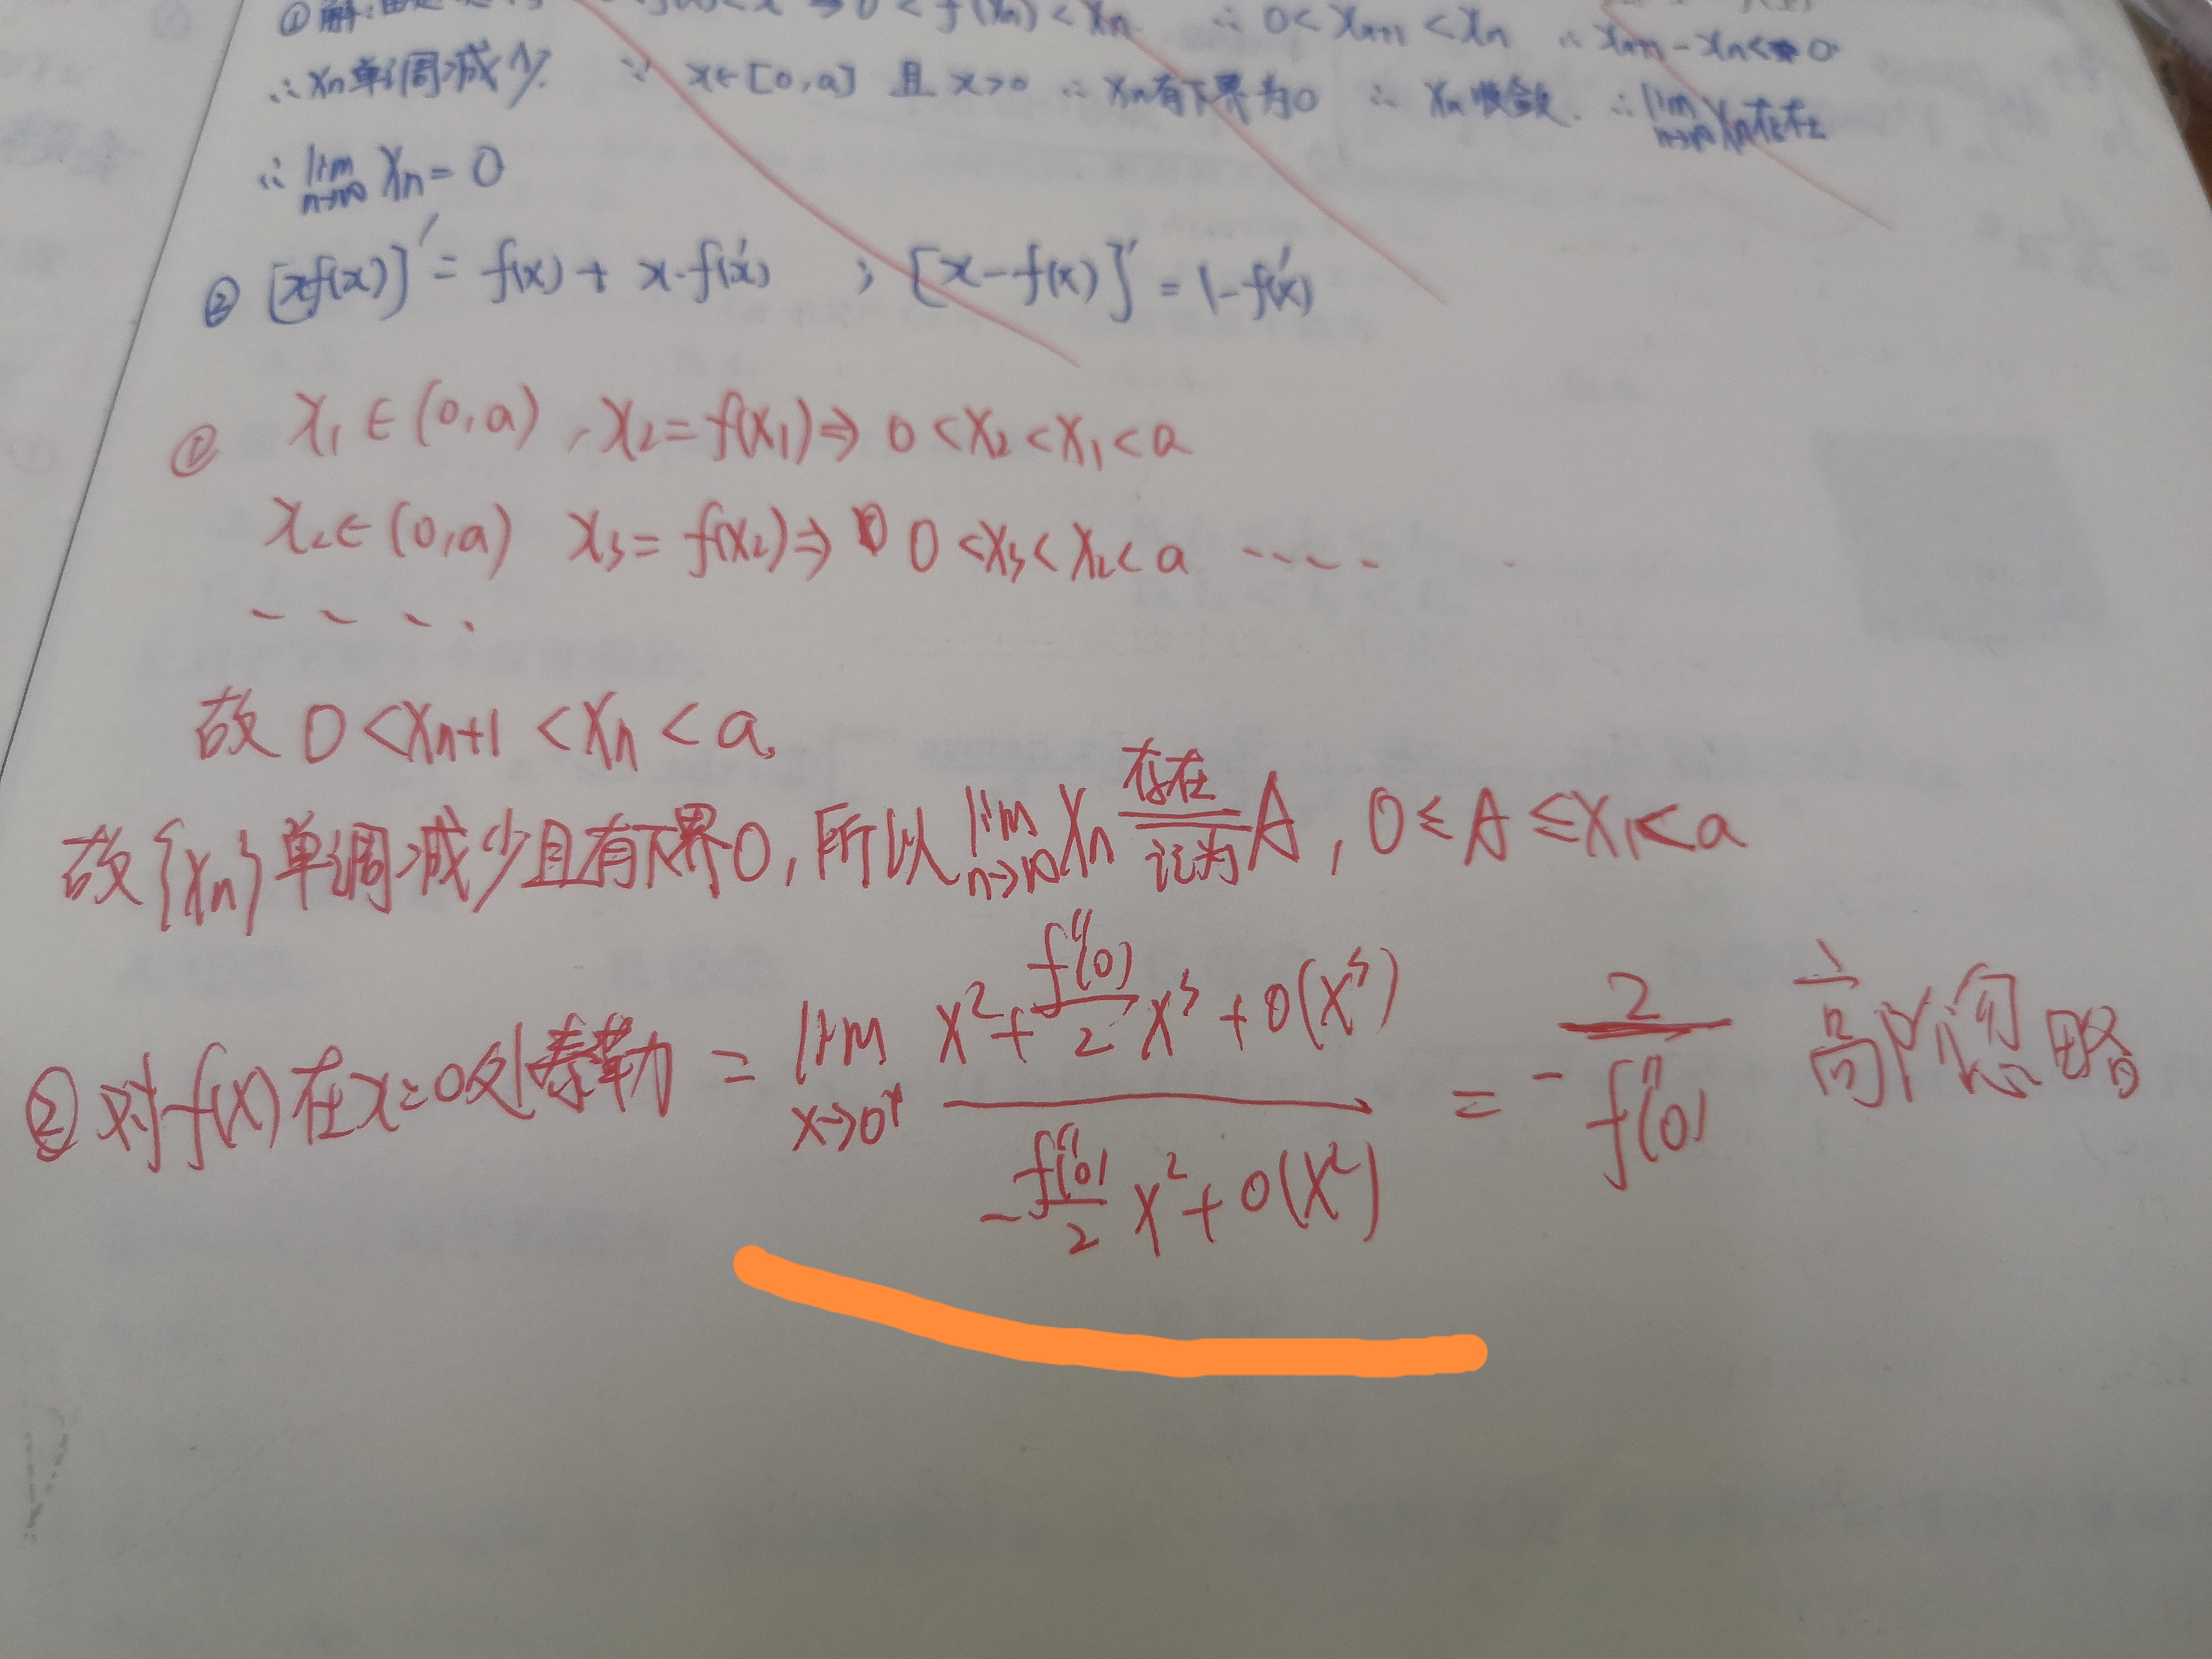 ①解: <x ⇒ 0<f(xn)<xn ∴ 0<xn+1<xn ∴ xn+1-xn<0
∴xn单调减少 ∵ x∈[0,a] 且 x>0 ∴ xn有下界为0 ∴ xn收敛. ∴lim n→∞ xn存在
∴ lim n→∞ xn=0
② [xf(x)]′= f(x)+x·f′(x) ; [x-f(x)]′=1-f′(x)
① x₁∈(0,a), x₂=f(x₁)⇒ 0<x₂<x₁<a
x₂∈(0,a) x₃=f(x₂)⇒ 0<x₃<x₂<a ·····
····
故 0<xn+1<xn<a.
故{xn}单调减少且有下界0,所以 lim n→∞ xn 存在 记为 A, 0≤A≤x₁<a
②对f(x)在x=0处泰勒 = lim x→0⁺ (x²+f″(0)/2 x³+o(x³))/(-f″(0)/2 x²+o(x²)) = -2/f″(0) 高阶忽略